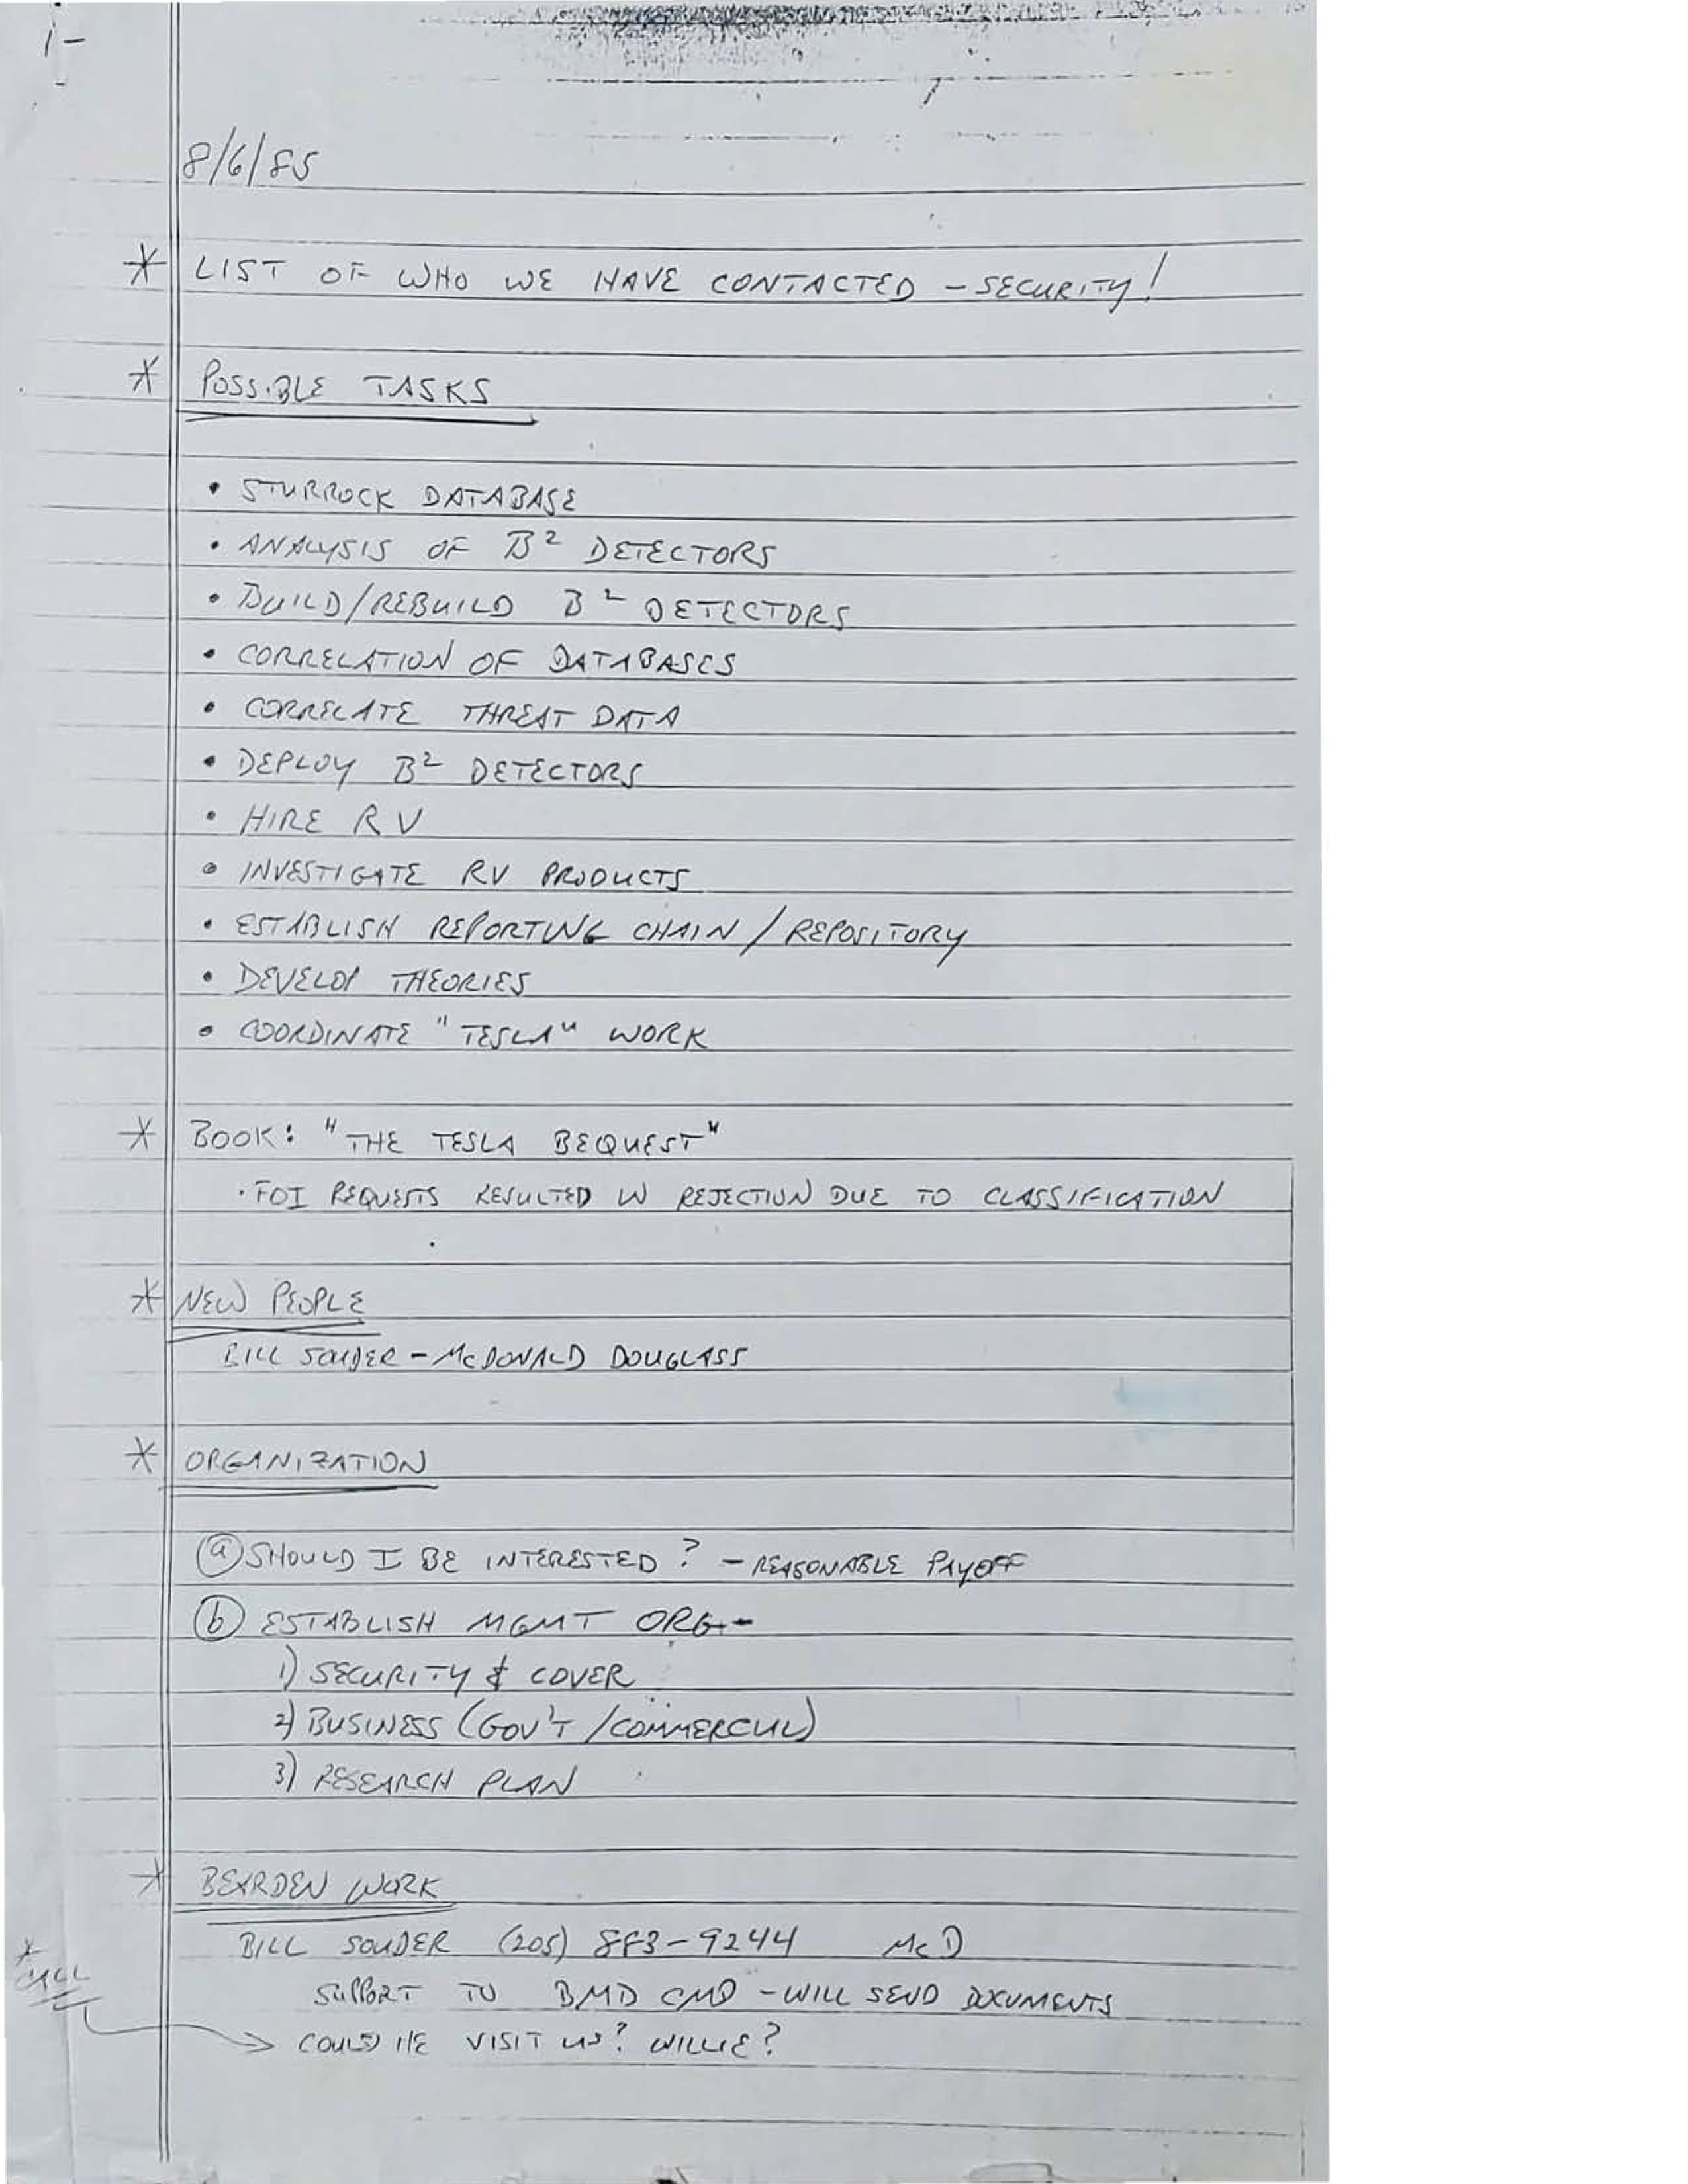 8/6/85
* LIST OF WHO WE HAVE CONTACTED - SECURITY!
* POSSIBLE TASKS
• STURROCK DATABASE
• ANALYSIS OF B² DETECTORS
• BUILD/REBUILD B² DETECTORS
• CORRELATION OF DATABASES
• CORRELATE THREAT DATA
• DEPLOY B² DETECTORS
• HIRE RV
• INVESTIGATE RV PRODUCTS
• ESTABLISH REPORTING CHAIN / REPOSITORY
• DEVELOP THEORIES
• COORDINATE "TESLA" WORK
* BOOK: "THE TESLA BEQUEST"
• FOI REQUESTS RESULTED IN REJECTION DUE TO CLASSIFICATION
* NEW PEOPLE
BILL SOUDER - McDONALD DOUGLASS
* ORGANIZATION
(a) SHOULD I BE INTERESTED? - REASONABLE PAYOFF
(b) ESTABLISH MGMT ORG -
1) SECURITY & COVER
2) BUSINESS (GOV'T / COMMERCIAL)
3) RESEARCH PLAN
* BEARDEN WORK
BILL SOUDER (205) 883-9244 McD
SUPPORT TO BMD CMD - WILL SEND DOCUMENTS
* CALL
→ COULD HE VISIT US? WILLIE?